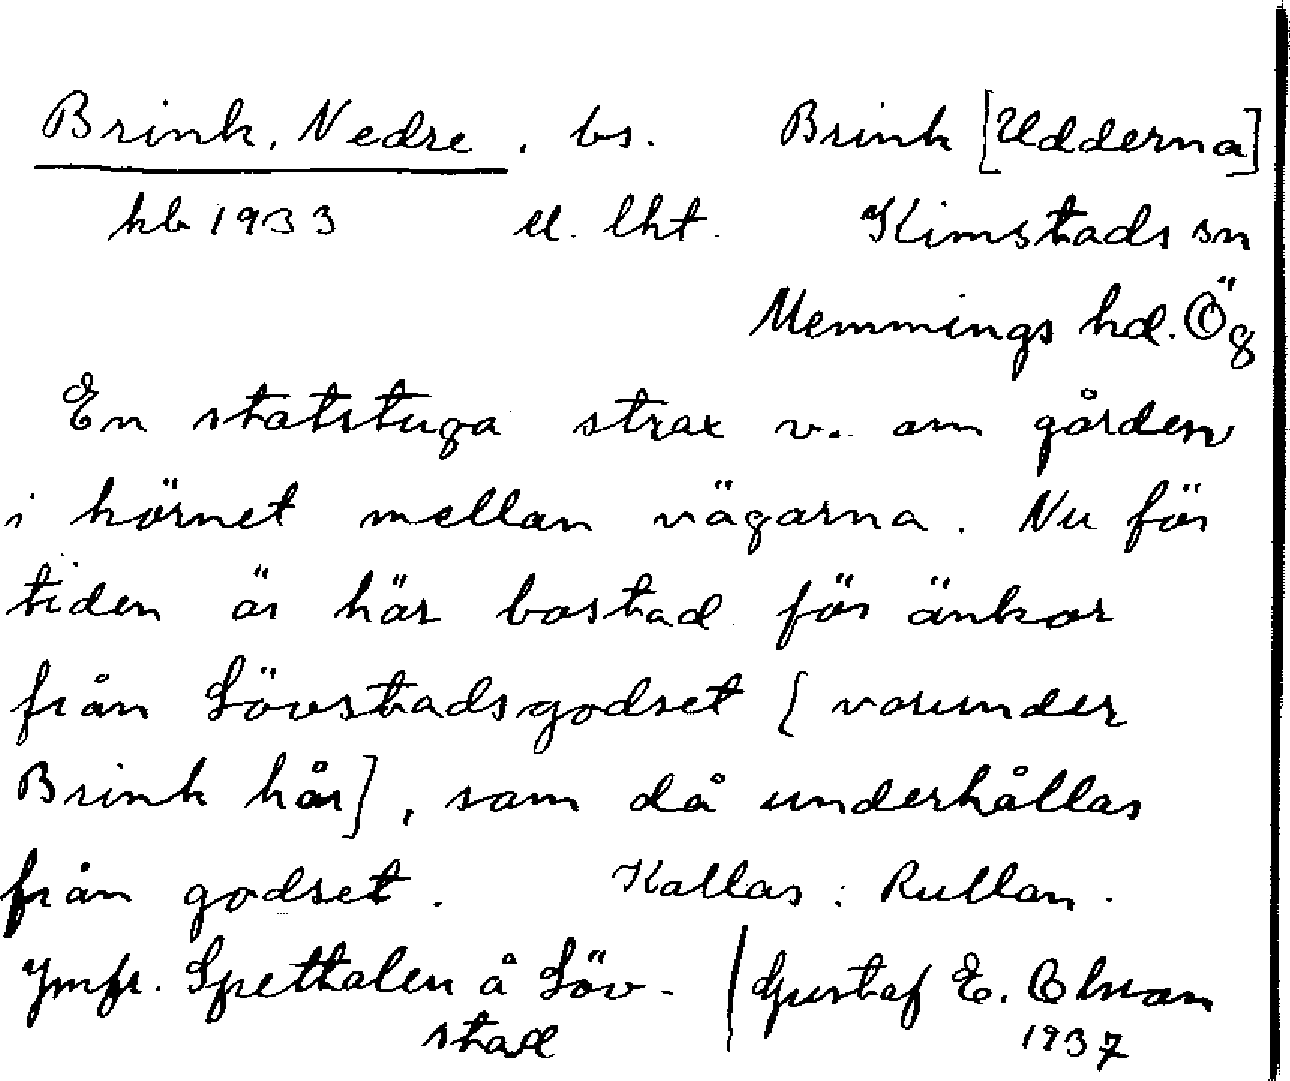 Brink, Nedre, bs. Brink [Udderna]
kb 1933 el. lht. Kimstads sn
Memmings hd. Ög
En statstuga strax v. om gården
i hörnet mellan vägarna. Nu för
tiden är här bostad för änkor
från Lövstadsgodset [varunder
Brink hör], som då underhållas
från godset. Kallas: Rullan.
Jmfr. Spettalen å Löv-
stad
Gustaf E. Olsson
1937